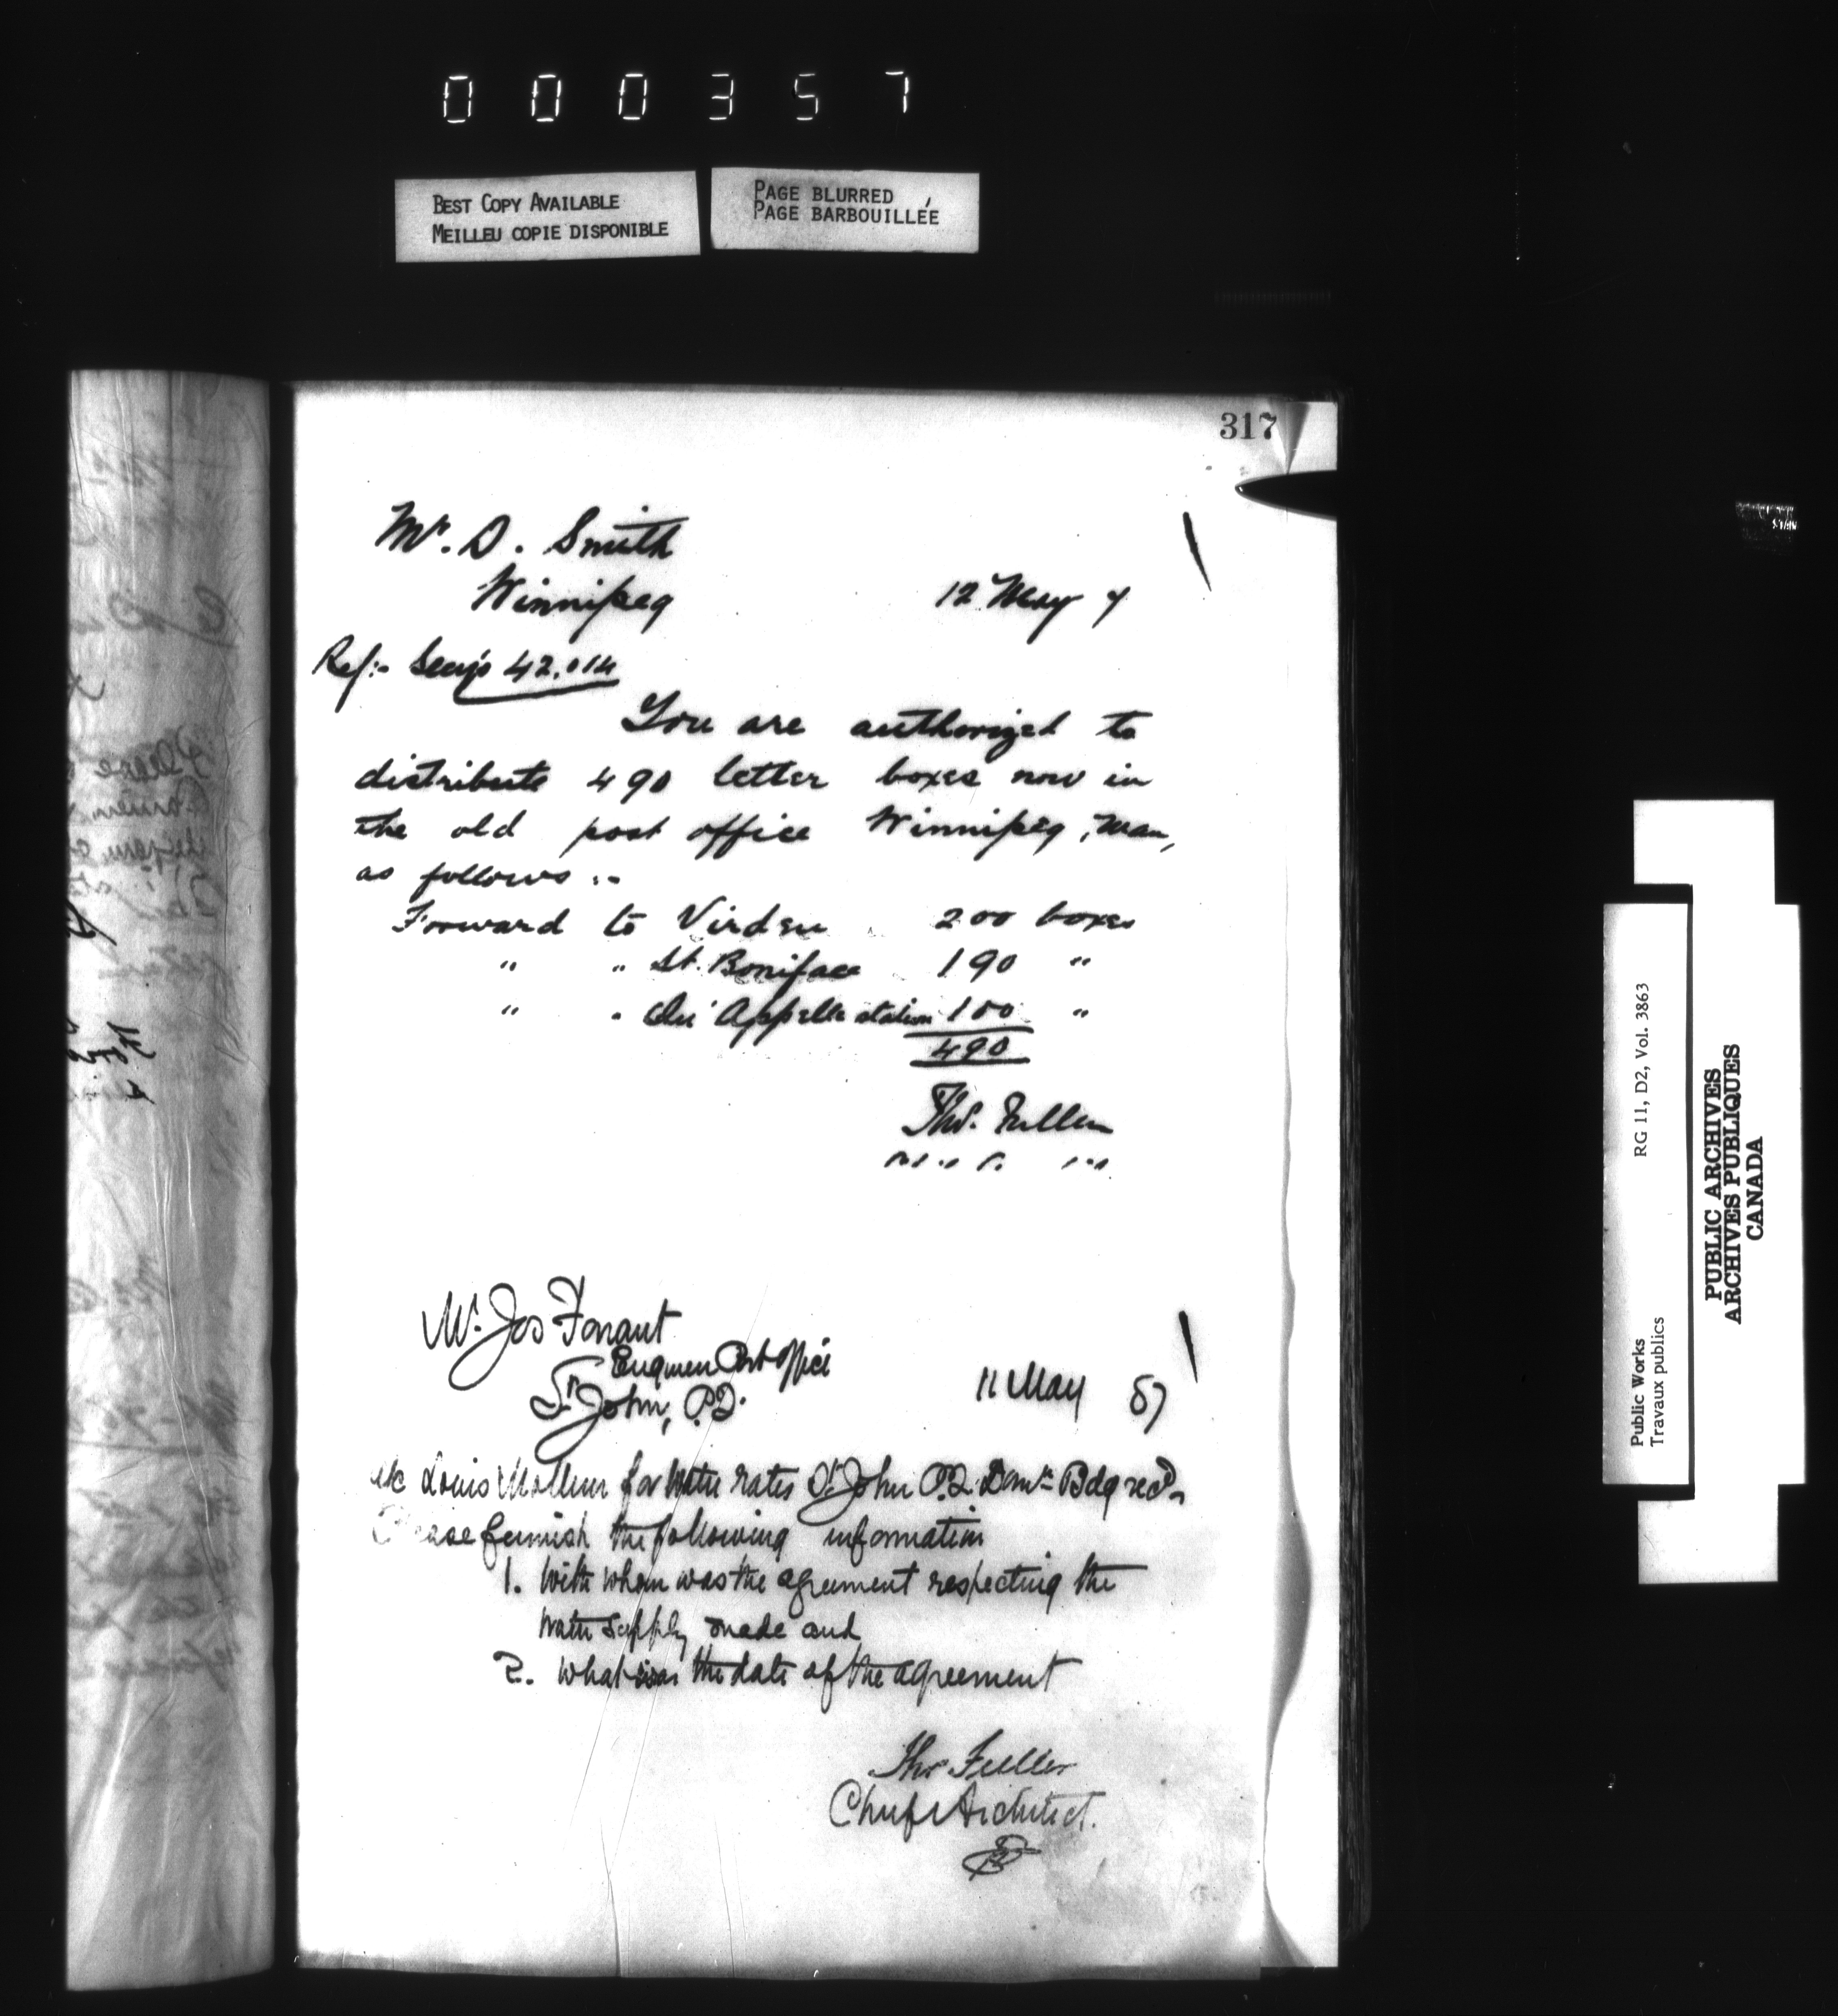 000357
BEST COPY AVAILABLE
MEILLEU COPIE DISPONIBLE
PAGE BLURRED
PAGE BARBOUILLÉE
317
Mr. D. Smith
Winnipeg
12 May 7
Ref:- Secy's 42.014
You are authorized to
distribute 490 letter boxes now in
the old post office Winnipeg, Man,
as follows :-
Forward to Virden 200 boxes
" " St. Boniface 190 "
" " Qu'Appelle station 100 "
490
Thos. Fuller
Mr. Jos
Post Office
St. John, P.Q.
11 May 87
a/c Louis for Water rates St. John P.Q. Domn Bdg recd.
Please furnish the following information
1. With whom was the agreement respecting the
water supply made and
2. What was the date of the agreement
Thos Fuller
Chief Architect.
Public Works RG 11, D2, Vol. 3863
Travaux publics
PUBLIC ARCHIVES
ARCHIVES PUBLIQUES
CANADA